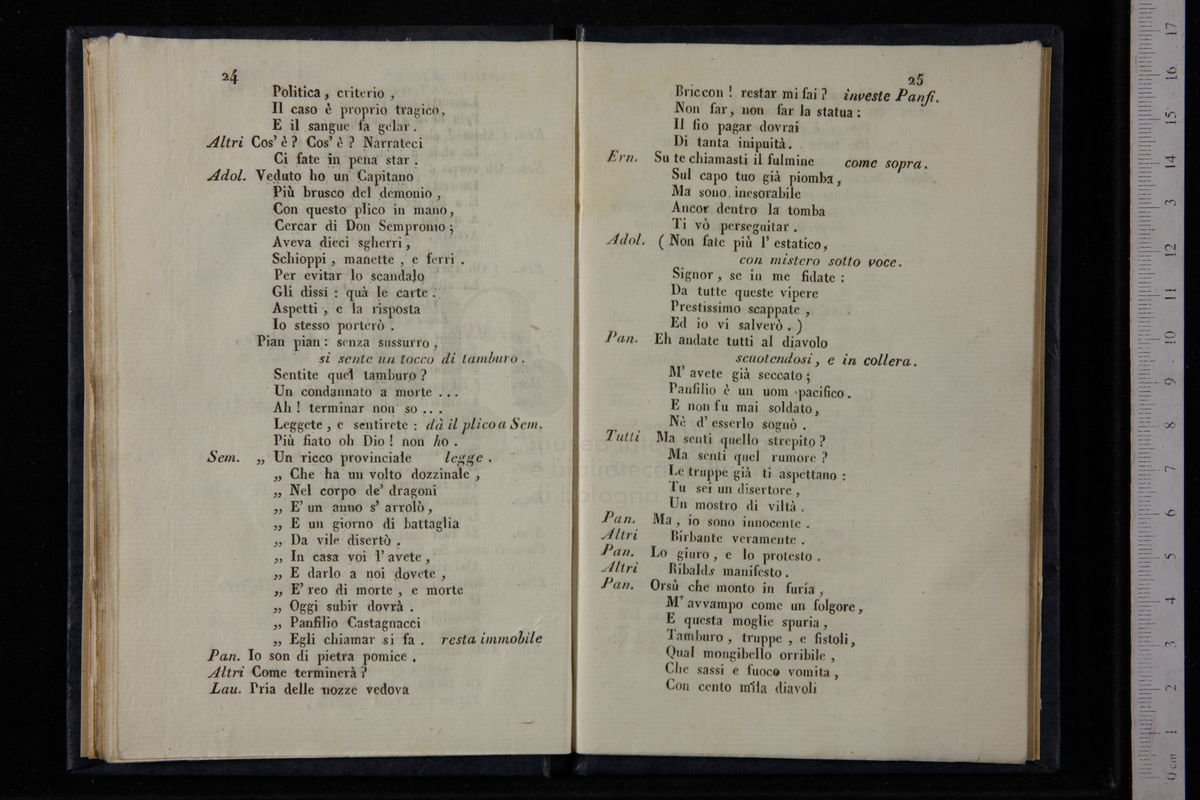 24
Politica, criterio,
Il caso è proprio tragico,
E il sangue fa gelar.
Altri Cos' è? Cos' è? Narrateci
Ci fate in pena star.
Adol. Veduto ho un Capitano
Più brusco del demonio,
Con questo plico in mano,
Cercar di Don Sempronio;
Aveva dieci sgherri,
Schioppi, manette, e ferri.
Per evitar lo scandalo
Gli dissi: quà le carte.
Aspetti, e la risposta
Io stesso porterò.
Pian pian: senza sussurro,
si sente un tocco di tamburo.
Sentite quel tamburo?
Un condannato a morte ...
Ah! terminar non so ...
Leggete, e sentirete: dà il plico a Sem.
Più fiato oh Dio! non ho.
Sem. „ Un ricco provinciale legge.
„ Che ha un volto dozzinale,
„ Nel corpo de' dragoni
„ E' un anno s' arrolò,
„ E un giorno di battaglia
„ Da vile disertò.
„ In casa voi l' avete,
„ E darlo a noi dovete,
„ E' reo di morte, e morte
„ Oggi subir dovrà.
„ Panfilio Castagnacci
„ Egli chiamar si fa. resta immobile
Pan. Io son di pietra pomice.
Altri Come terminerà?
Lau. Pria delle nozze vedova
25
Briccon! restar mi fai? investe Panfi.
Non far, non far la statua:
Il fio pagar dovrai
Di tanta inipuità.
Ern. Su te chiamasti il fulmine come sopra.
Sul capo tuo già piomba,
Ma sono inesorabile
Ancor dentro la tomba
Ti vò perseguitar.
Adol. (Non fate più l' estatico,
con mistero sotto voce.
Signor, se in me fidate:
Da tutte queste vipere
Prestissimo scappate,
Ed io vi salverò.)
Pan. Eh andate tutti al diavolo
scuotendosi, e in collera.
M' avete già seccato;
Panfilio è un uom pacifico.
E non fu mai soldato,
Nè d' esserlo sognò.
Tutti Ma senti quello strepito?
Ma senti quel rumore?
Le truppe già ti aspettano:
Tu sei un disertore,
Un mostro di viltà.
Pan. Ma, io sono innocente.
Altri Birbante veramente.
Pan. Lo giuro, e lo protesto.
Altri Ribaldo manifesto.
Pan. Orsù che monto in furia,
M' avvampo come un folgore,
E questa moglie spuria,
Tamburo, truppe, e fistoli,
Qual mongibello orribile,
Che sassi e fuoco vomita,
Con cento mila diavoli